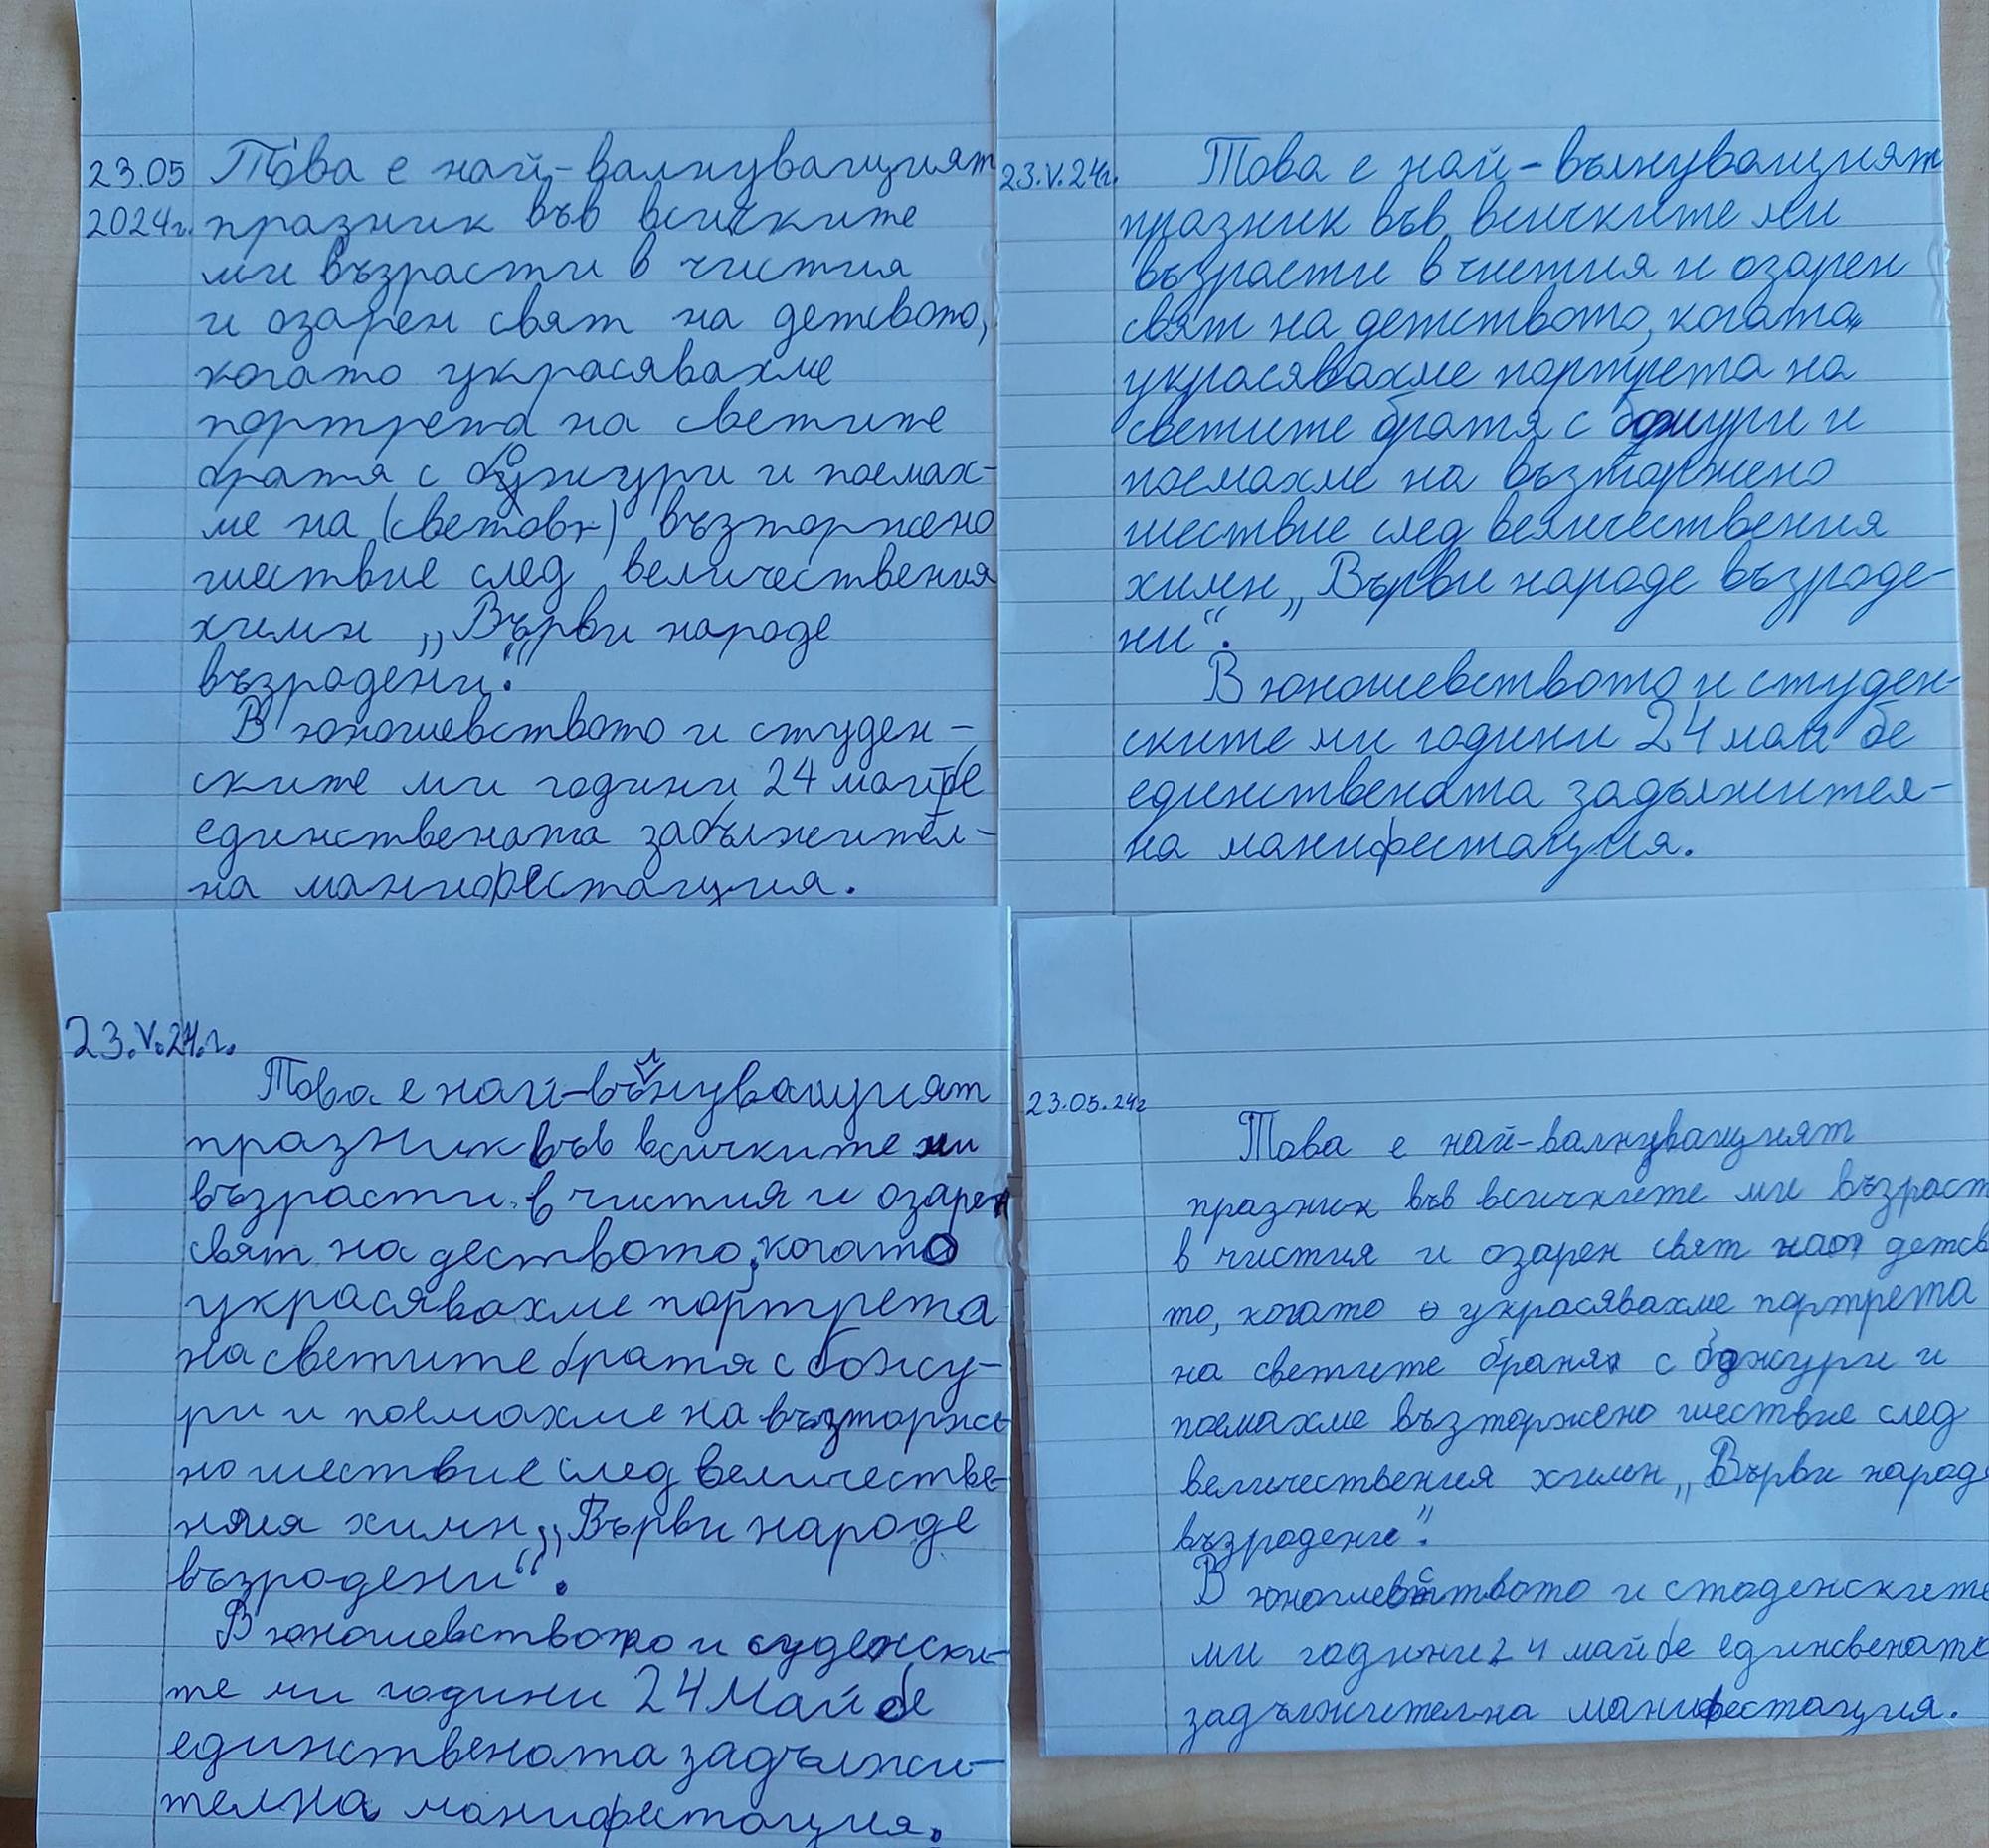 23.05
2024г.
Това е най-валнуващият
празник във всичките
ми възрасти в чистия
и озарен свят на детсвото,
когато украсявахме
портрета на светите
братя с божури и поемах-
ме на (светов) възторжено
шествие след величествения
химн „Върви народе
възродени“.
В юношевството и студен-
ските ми години 24 май бе
единствената забължител-
на манифестация.
23.V.24г.
Това е най-вълнуващият
празник във всичките ми
възрасти в чистия и озарен
свят на детството, когато
украсявахме портрета на
светите братя с божури и
поемахме на възторжено
шествие след величествения
химн „Върви народе възроде-
ни“.
В юношевството и студен-
ските ми години 24 май бе
единствената задължител-
на манифестация.
23.V.24.г.
Това е най-вълнуващият
празник във всичките ми
възрасти в чистия и озарен
свят на деството, когато
украсявахме портрета
на светите братя с божу-
ри и поемахме на възторже
но шествие след величестве-
ния химн „Върви народе
възродени“.
В юношевството и суденски-
те ми години 24 Май бе
единствената задължи-
телна манифестация.
23.05.24г
Това е най-валнуващият
празник във всичките ми възраст
в чистия и озарен свят на детсв
то, когато украсявахме портрета
на светите браня с божури и
поемахме възторжено шествие след
величествения химн „Върви народе
възродени“.
В юношевството и стоденските
ми години 24 май бе единсвената
задължителна манифестация.